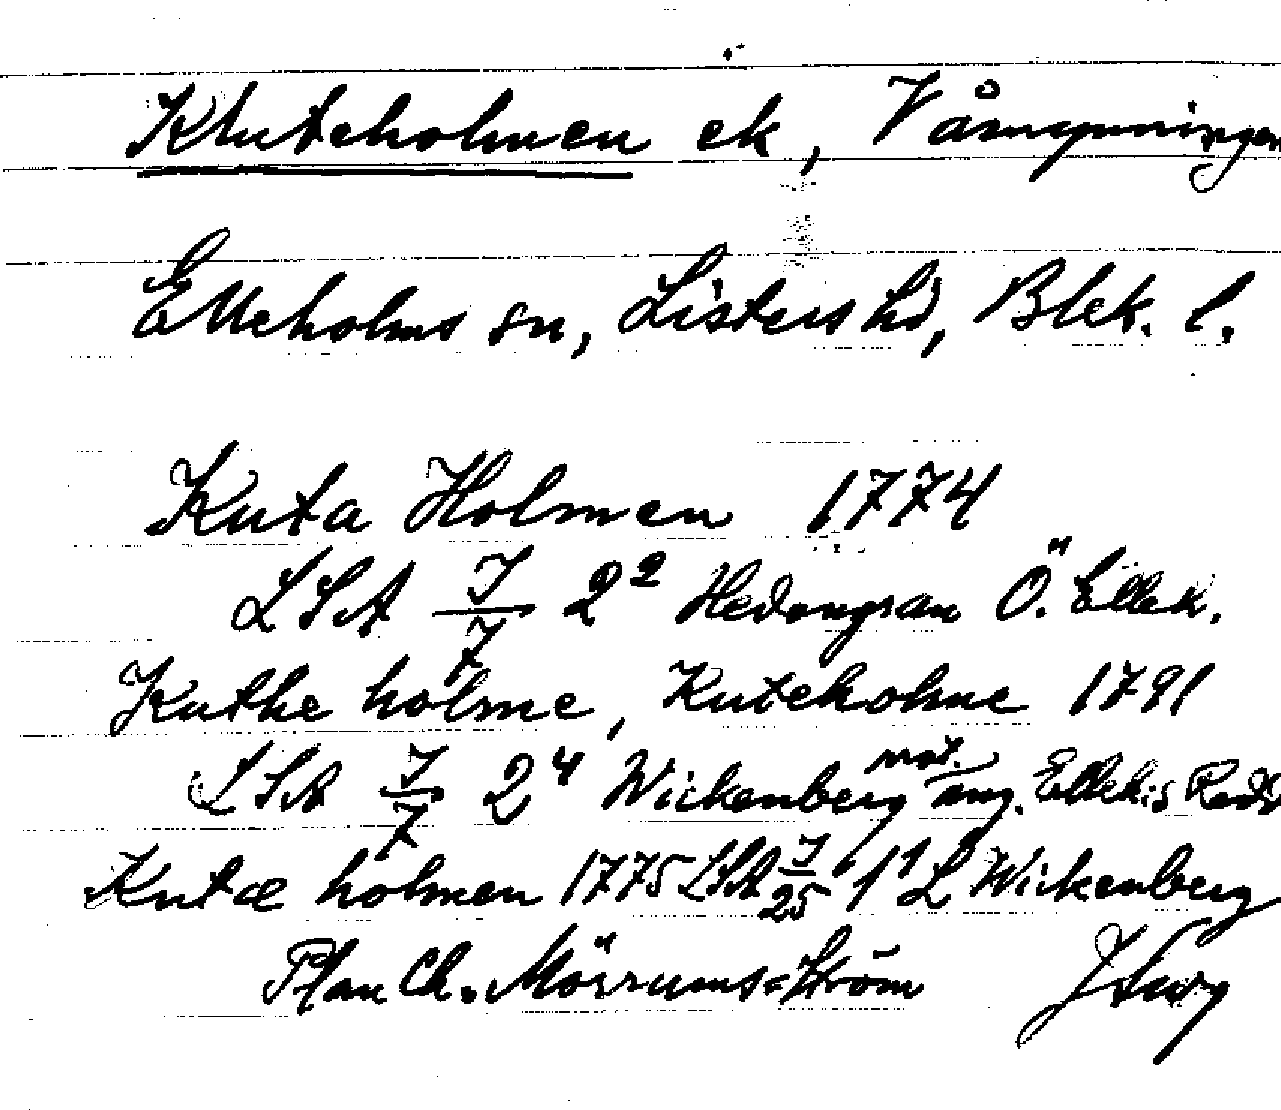 Kluteholmen ek, Våmynningen
Elleholms sn, Listers hd, Blek. l.
Kuta Holmen 1774
LSA I/7 2² Hedengran Ö. Ellek.
Kuthe holme, Kuteholme 1791
LSA I/7 2⁴ Wickenberg
Kutæ holmen 1775 LSA I/25 1¹ L Wickenberg
Plan Ch. Mörrums-Ström